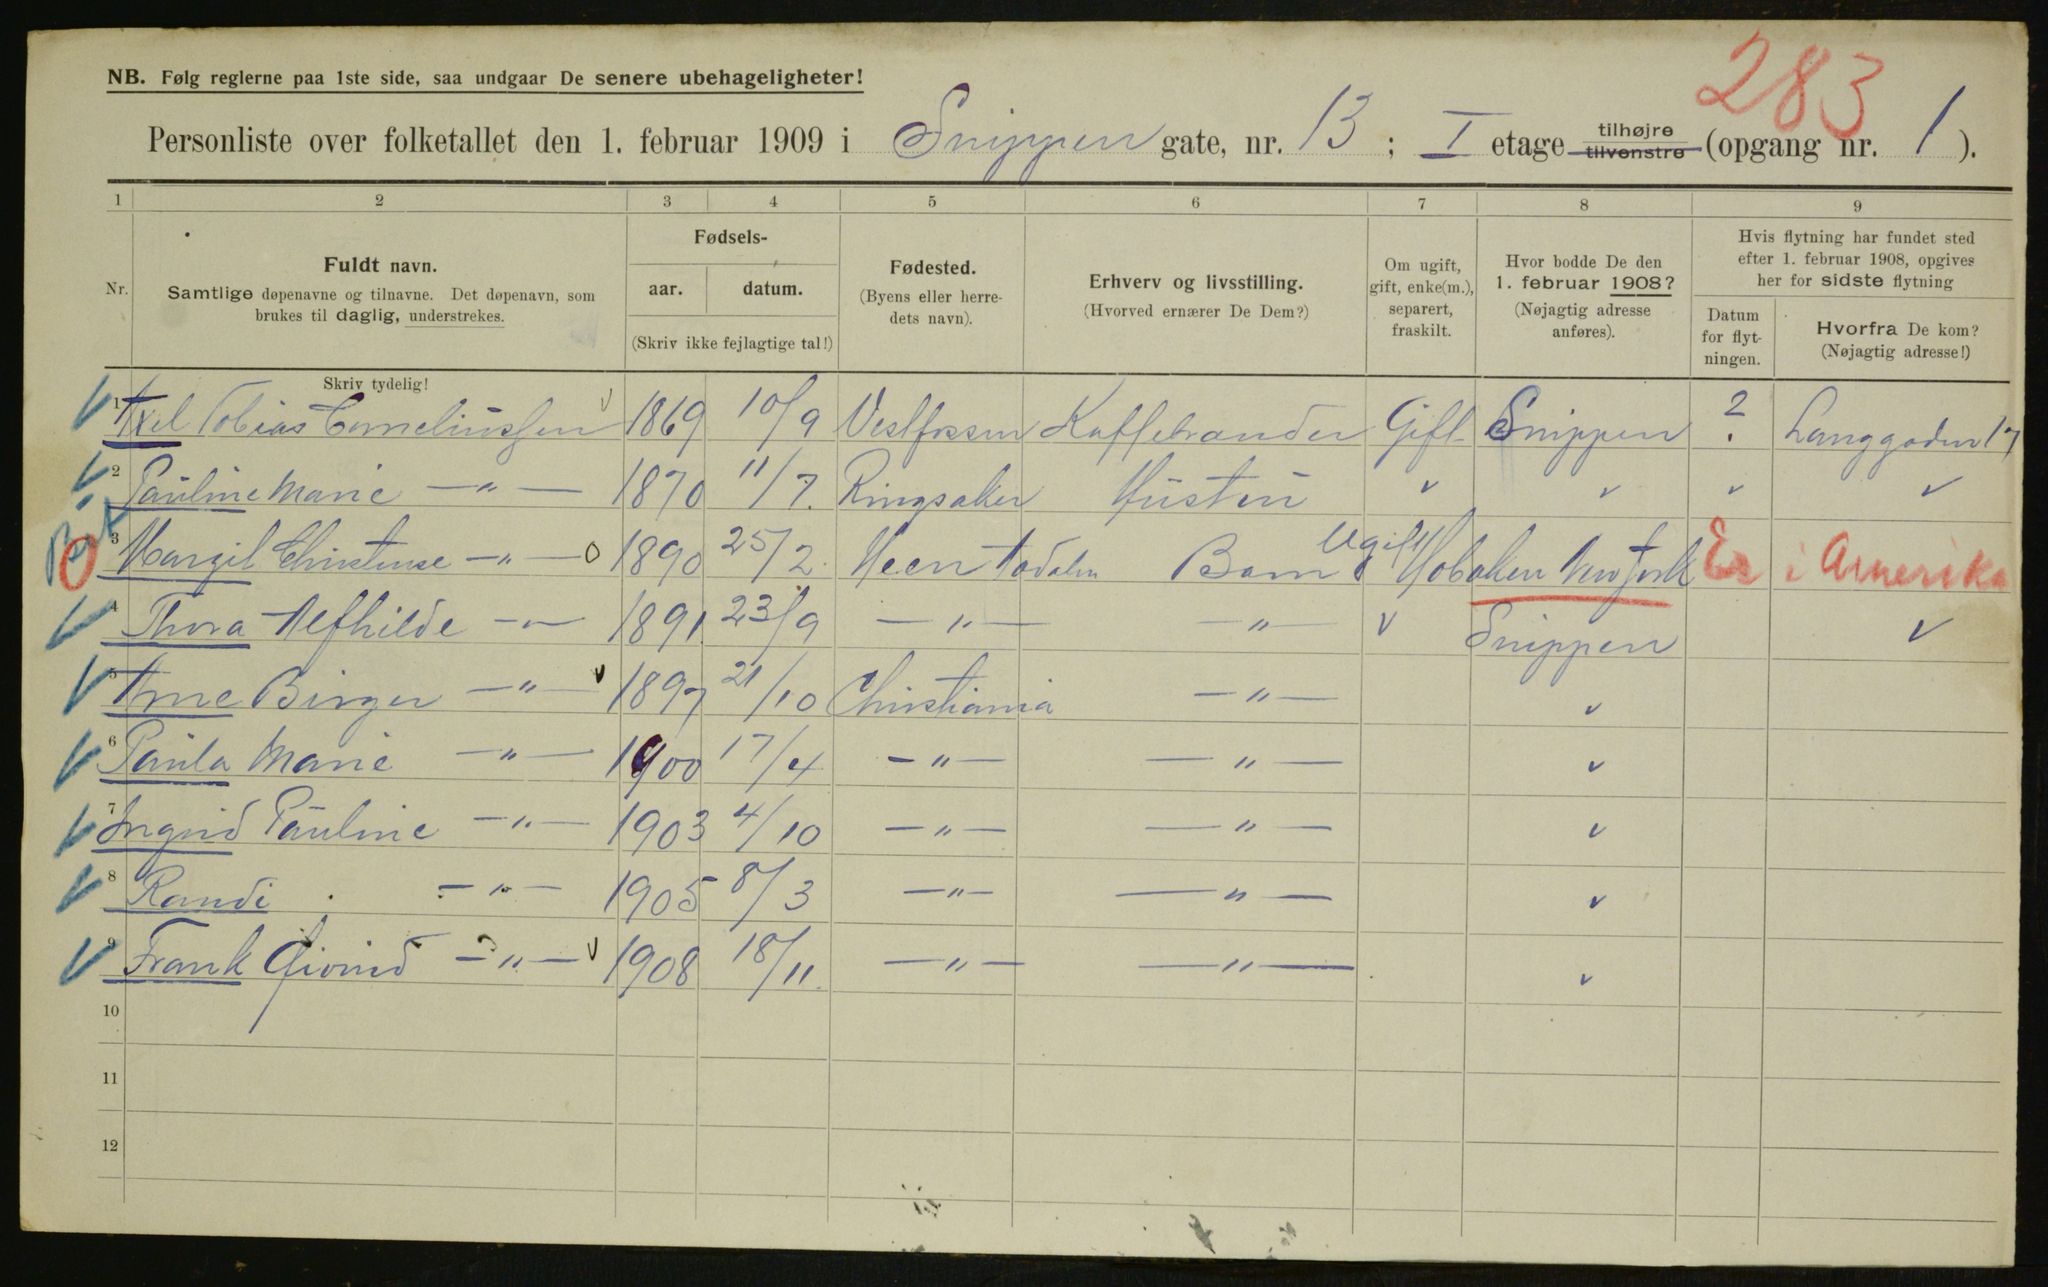 283
NB. Følg reglerne paa 1ste side, saa undgaar De senere ubehageligheter!
Personliste over folketallet den 1. februar 1909 i Snippen gate, nr. 13 ; I etage tilhøjre tilvenstre (opgang nr. 1 ).
1 2 3 4 5 6 7 8 9
Nr.
Fuldt navn.
Samtlige døpenavne og tilnavne. Det døpenavn, som
brukes til daglig, understrekes.
Skriv tydelig!
Fødsels-
aar. datum.
(Skriv ikke fejlagtige tal!)
Fødested.
(Byens eller herre-
dets navn).
Erhverv og livsstilling.
(Hvorved ernærer De Dem?)
Om ugift,
gift, enke(m.),
separert,
fraskilt.
Hvor bodde De den
1. februar 1908?
(Nøjagtig adresse
anføres).
Hvis flytning har fundet sted
efter 1. februar 1908, opgives
her for sidste flytning
Datum
for flyt-
ningen.
Hvorfra De kom?
(Nøjagtig adresse!)
1 Axel Tobias Corneliussen 1869 10/9 Vestfossen Kaffebrander Gift Snippen ? Langgaden 17
2 Pauline Marie —"— 1870 11/7. Ringsaker Hustru
3 Margit Christense —"— 1890 25/2 Barn Ugift Hoboken New York Er i Amerika
4 Thora Alfhilde —"— 1891. 23/9 —"— —"— Snippen
5 Arne Birger —"— 1897 21/10 Christiania —"—
6 Paula Marie —"— 1900 17/4 —"— —"—
7 Ingrid Pauline —"— 1903 4/10 —"— —"—
8 Randi —"— 1905 8/3 —"— —"—
9 Frank Øivind —"— 1908 18/11. —"— —"—
10
11
12